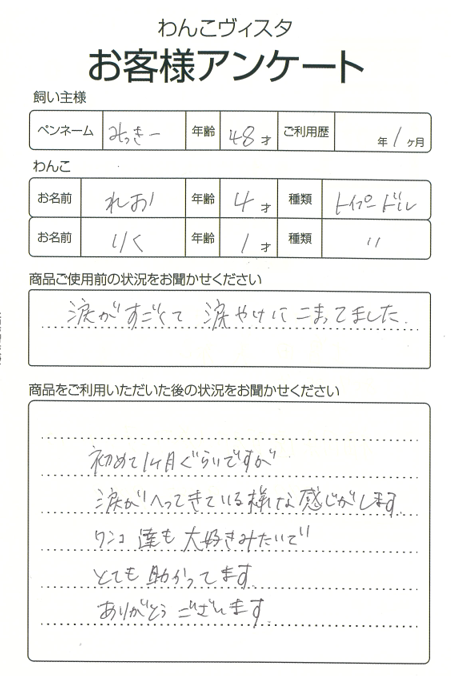 わんこヴィスタ
お客様アンケート
飼い主様
ペンネーム みっきー 年齢 48才 ご利用歴 年 1ヶ月
わんこ
お名前 れお 年齢 4才 種類 トイプードル
お名前 りく 年齢 1才 種類 〃
商品ご使用前の状況をお聞かせください
涙がすごくて 涙やけにこまってました
商品をご利用いただいた後の状況をお聞かせください
初めて1ヶ月ぐらいですが
涙がへってきている様な感じがします
ワンコ達も大好きみたいで
とても助かってます
ありがとうございます